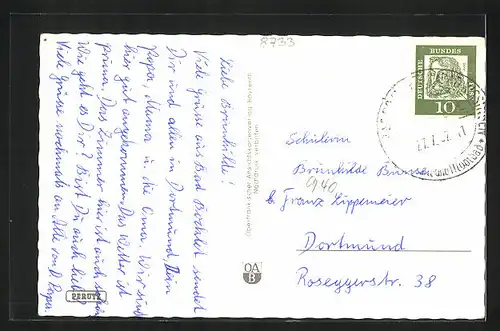 8733
Liebe Brunhilde!
Viele Grüsse aus Bad Bocklet sendet
Dir und allen in Dortmund, Dein
Papa, Mama u. die Oma. Wir sind
hier gut angekommen. Das Wetter ist
prima. Das Zimmer hier ist auch schön.
Wie geht es Dir? Bist Du auch lieb
Viele Grüsse nochmals an Alle von D. Papa.
PERUTZ
OA
B
Oberfränkischer Ansichtskartenverlag Bayreuth
Nachdruck verboten
DEUTSCHE
BUNDES
POST
10
Schülerin
Brünhilde
b. Franz Lippemeier
Dortmund
Roseggerstr. 38